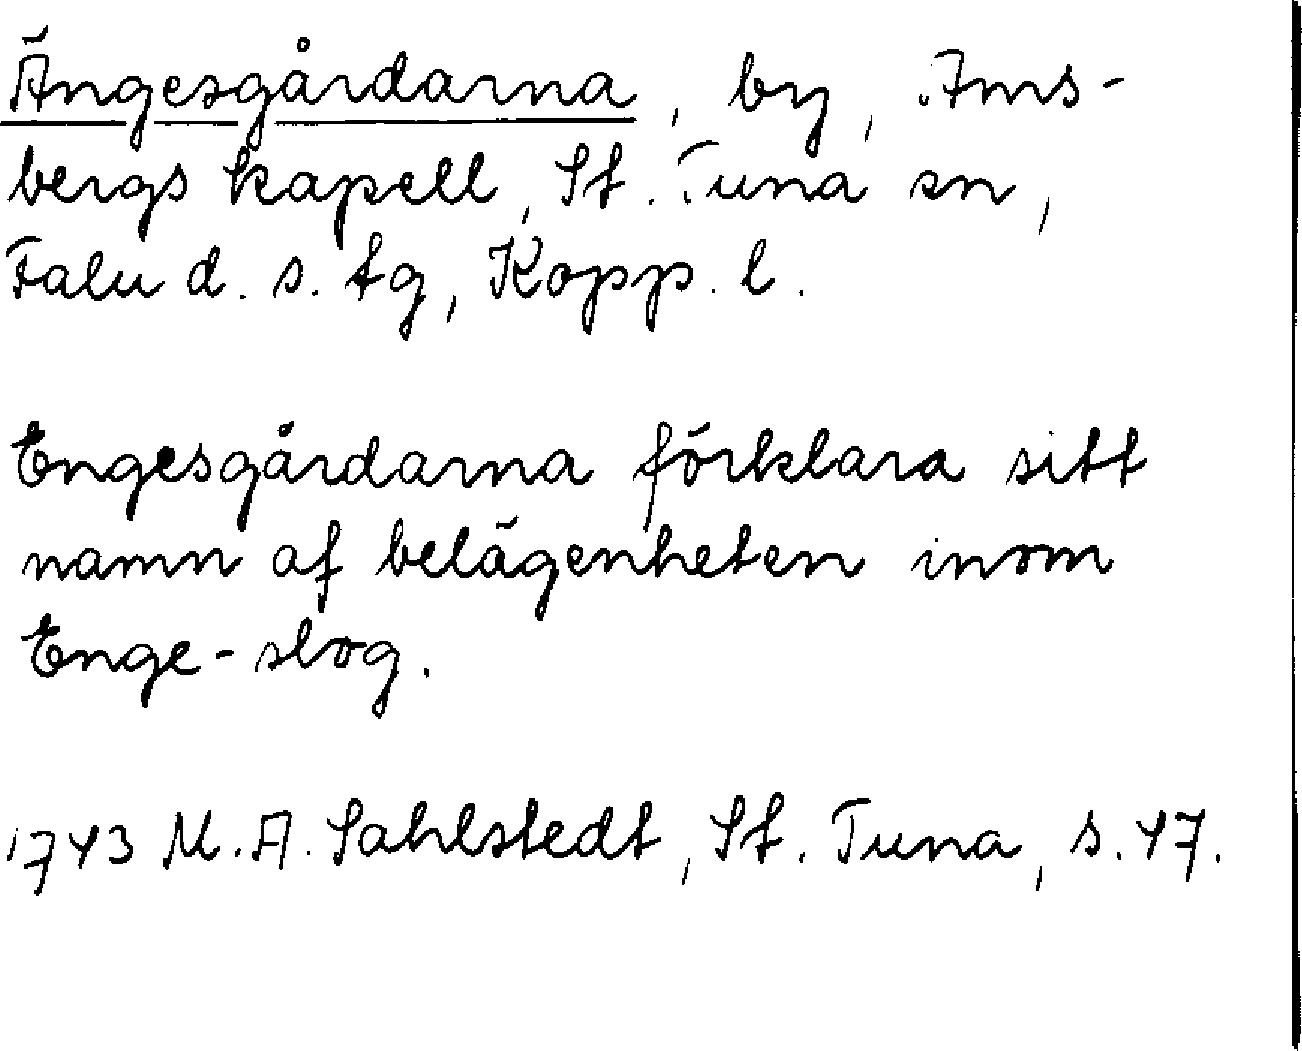 Ängesgårdarna, by, Ams-
bergs kapell, St. Tuna sn,
Falu d. s. tg, Kopp. l.
Engesgårdarna förklara sitt
namn af belägenheten inom
Enge-skog.
1743 M. A. Sahlstedt, St. Tuna, s. 47.